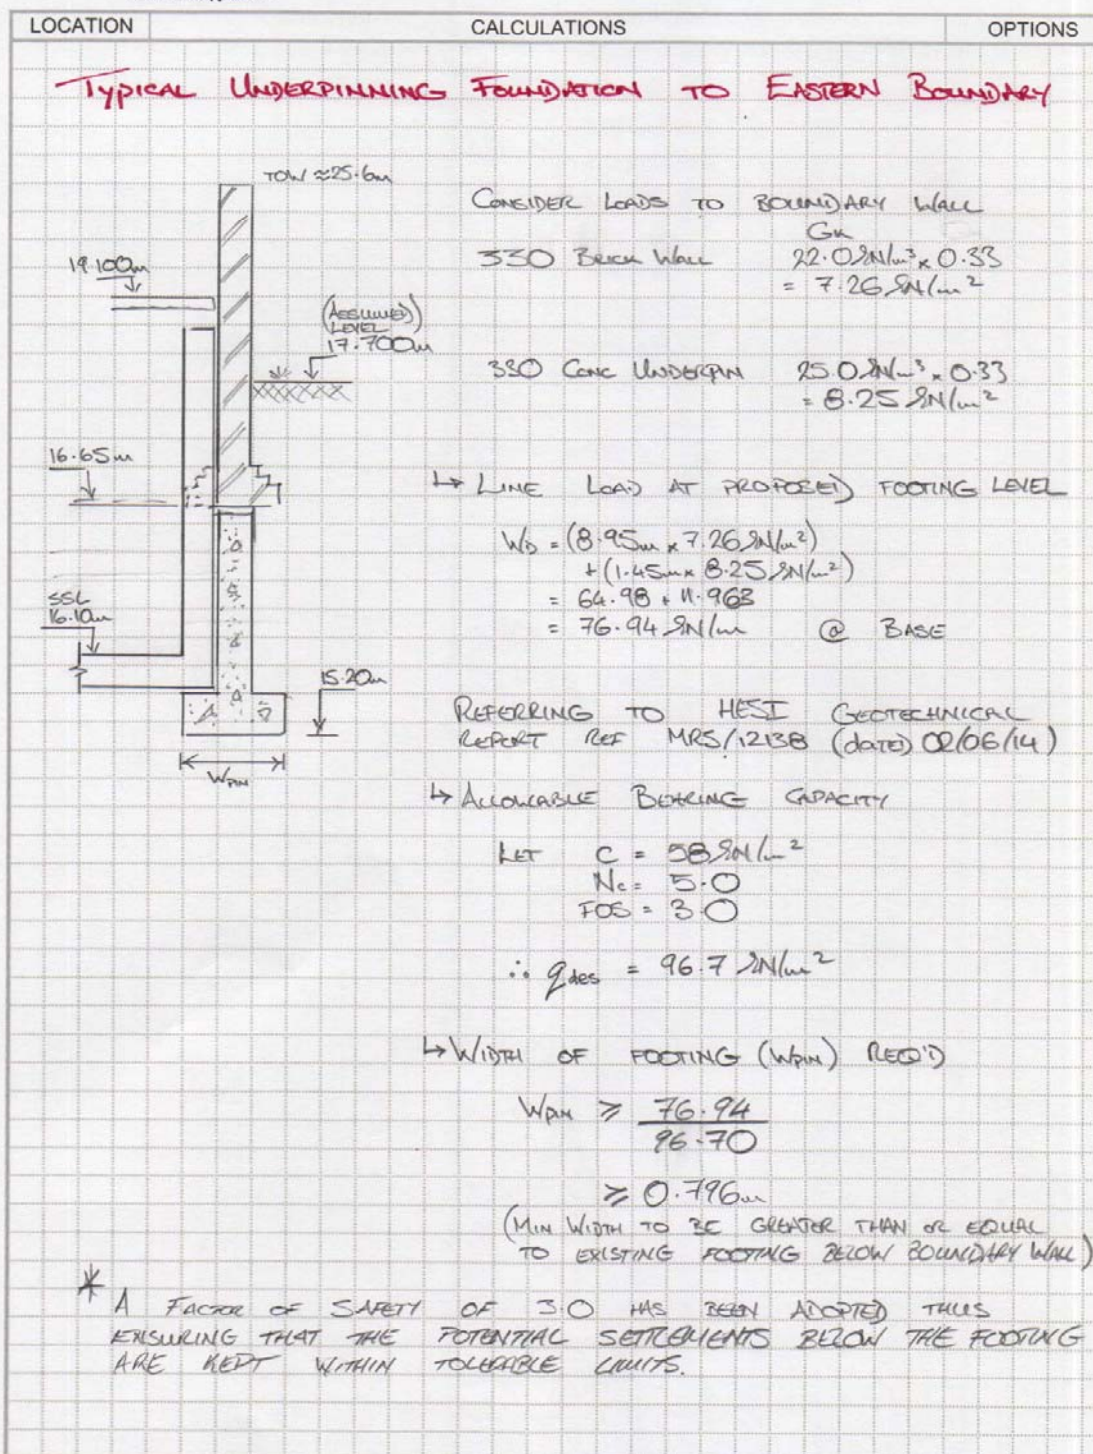 LOCATION CALCULATIONS OPTIONS
TYPICAL UNDERPINNING FOUNDATION TO EASTERN BOUNDARY
TOW ≈25.6m
CONSIDER LOADS TO BOUNDARY WALL
Gk
330 BRICK WALL 22.0kN/m³ x 0.33
= 7.26 kN/m²
19.100m
(ASSUMED)
LEVEL
17.700m
330 CONC UNDERPIN 25.0kN/m³ x 0.33
= 8.25 kN/m²
16.65m
↳ LINE LOAD AT PROPOSED FOOTING LEVEL
WD = (8.95m x 7.26kN/m²)
+ (1.45m x 8.25kN/m²)
= 64.98 + 11.963
= 76.94 kN/m @ BASE
SSL
16.10m
15.20m
WPIN
REFERRING TO HESI GEOTECHNICAL
REPORT REF MRS/12138 (dated) 02/06/14)
↳ ALLOWABLE BEARING CAPACITY
LET C = 58kN/m²
Nc = 5.0
FOS = 3.0
∴ qdes = 96.7 kN/m²
↳ WIDTH OF FOOTING (WPIN) REQ'D
WPIN ≥ 76.94
96.70
≥ 0.796m
(MIN WIDTH TO BE GREATER THAN OR EQUAL
TO EXISTING FOOTING BELOW BOUNDARY WALL)
* A FACTOR OF SAFETY OF 3.0 HAS BEEN ADOPTED THUS
ENSURING THAT THE POTENTIAL SETTLEMENTS BELOW THE FOOTING
ARE KEPT WITHIN TOLERABLE LIMITS.